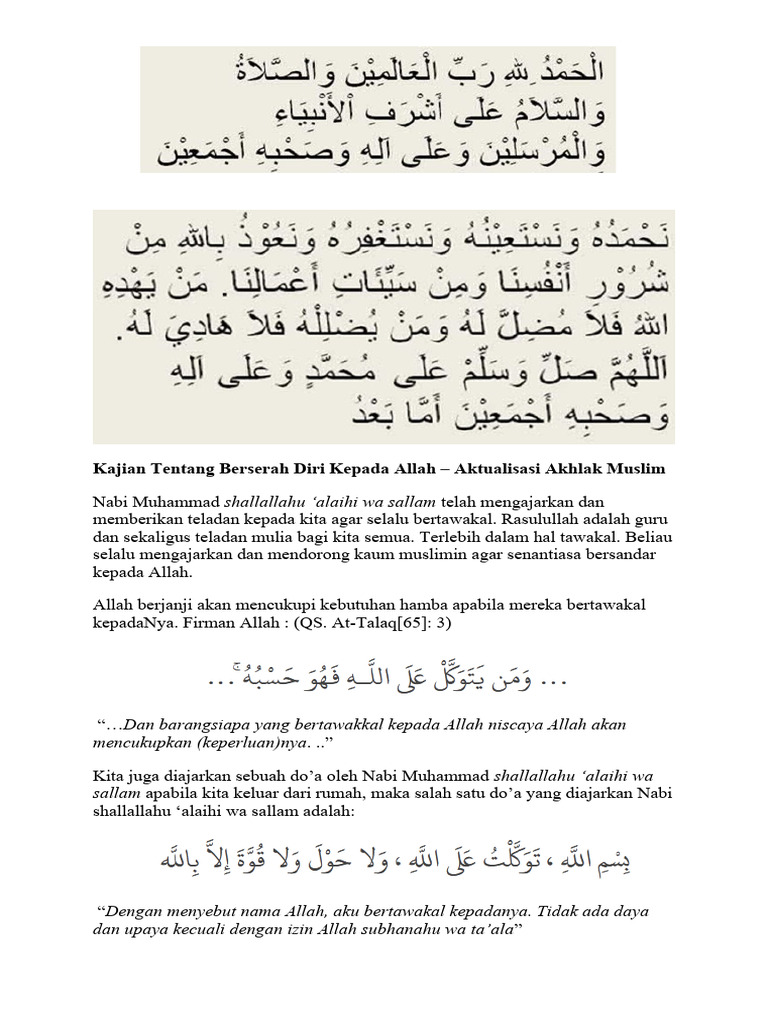 الْحَمْدُ لِلهِ رَبِّ الْعَالَمِيْنَ وَالصَّلاَةُ
وَالسَّلاَمُ عَلَى أَشْرَفِ الْأَنْبِيَاءِ
وَالْمُرْسَلِيْنَ وَعَلَى آلِهِ وَصَحْبِهِ أَجْمَعِيْنَ
نَحْمَدُهُ وَنَسْتَعِيْنُهُ وَنَسْتَغْفِرُهُ وَنَعُوْذُ بِاللهِ مِنْ
شُرُوْرِ أَنْفُسِنَا وَمِنْ سَيِّئَاتِ أَعْمَالِنَا. مَنْ يَهْدِهِ
اللهُ فَلاَ مُضِلَّ لَهُ وَمَنْ يُضْلِلْهُ فَلاَ هَادِيَ لَهُ.
اَللَّهُمَّ صَلِّ وَسَلِّمْ عَلَى مُحَمَّدٍ وَعَلَى آلِهِ
وَصَحْبِهِ أَجْمَعِيْنَ أَمَّا بَعْدُ
Kajian Tentang Berserah Diri Kepada Allah – Aktualisasi Akhlak Muslim
Nabi Muhammad shallallahu ‘alaihi wa sallam telah mengajarkan dan
memberikan teladan kepada kita agar selalu bertawakal. Rasulullah adalah guru
dan sekaligus teladan mulia bagi kita semua. Terlebih dalam hal tawakal. Beliau
selalu mengajarkan dan mendorong kaum muslimin agar senantiasa bersandar
kepada Allah.
Allah berjanji akan mencukupi kebutuhan hamba apabila mereka bertawakal
kepadaNya. Firman Allah : (QS. At-Talaq[65]: 3)
… وَمَن يَتَوَكَّلْ عَلَى اللَّـهِ فَهُوَ حَسْبُهُ ۚ…
“…Dan barangsiapa yang bertawakkal kepada Allah niscaya Allah akan
mencukupkan (keperluan)nya. ..”
Kita juga diajarkan sebuah do’a oleh Nabi Muhammad shallallahu ‘alaihi wa
sallam apabila kita keluar dari rumah, maka salah satu do’a yang diajarkan Nabi
shallallahu ‘alaihi wa sallam adalah:
بِسْمِ اللَّهِ ، تَوَكَّلْتُ عَلَى اللَّهِ ، وَلا حَوْلَ وَلا قُوَّةَ إِلاَّ بِاللَّه
“Dengan menyebut nama Allah, aku bertawakal kepadanya. Tidak ada daya
dan upaya kecuali dengan izin Allah subhanahu wa ta’ala”